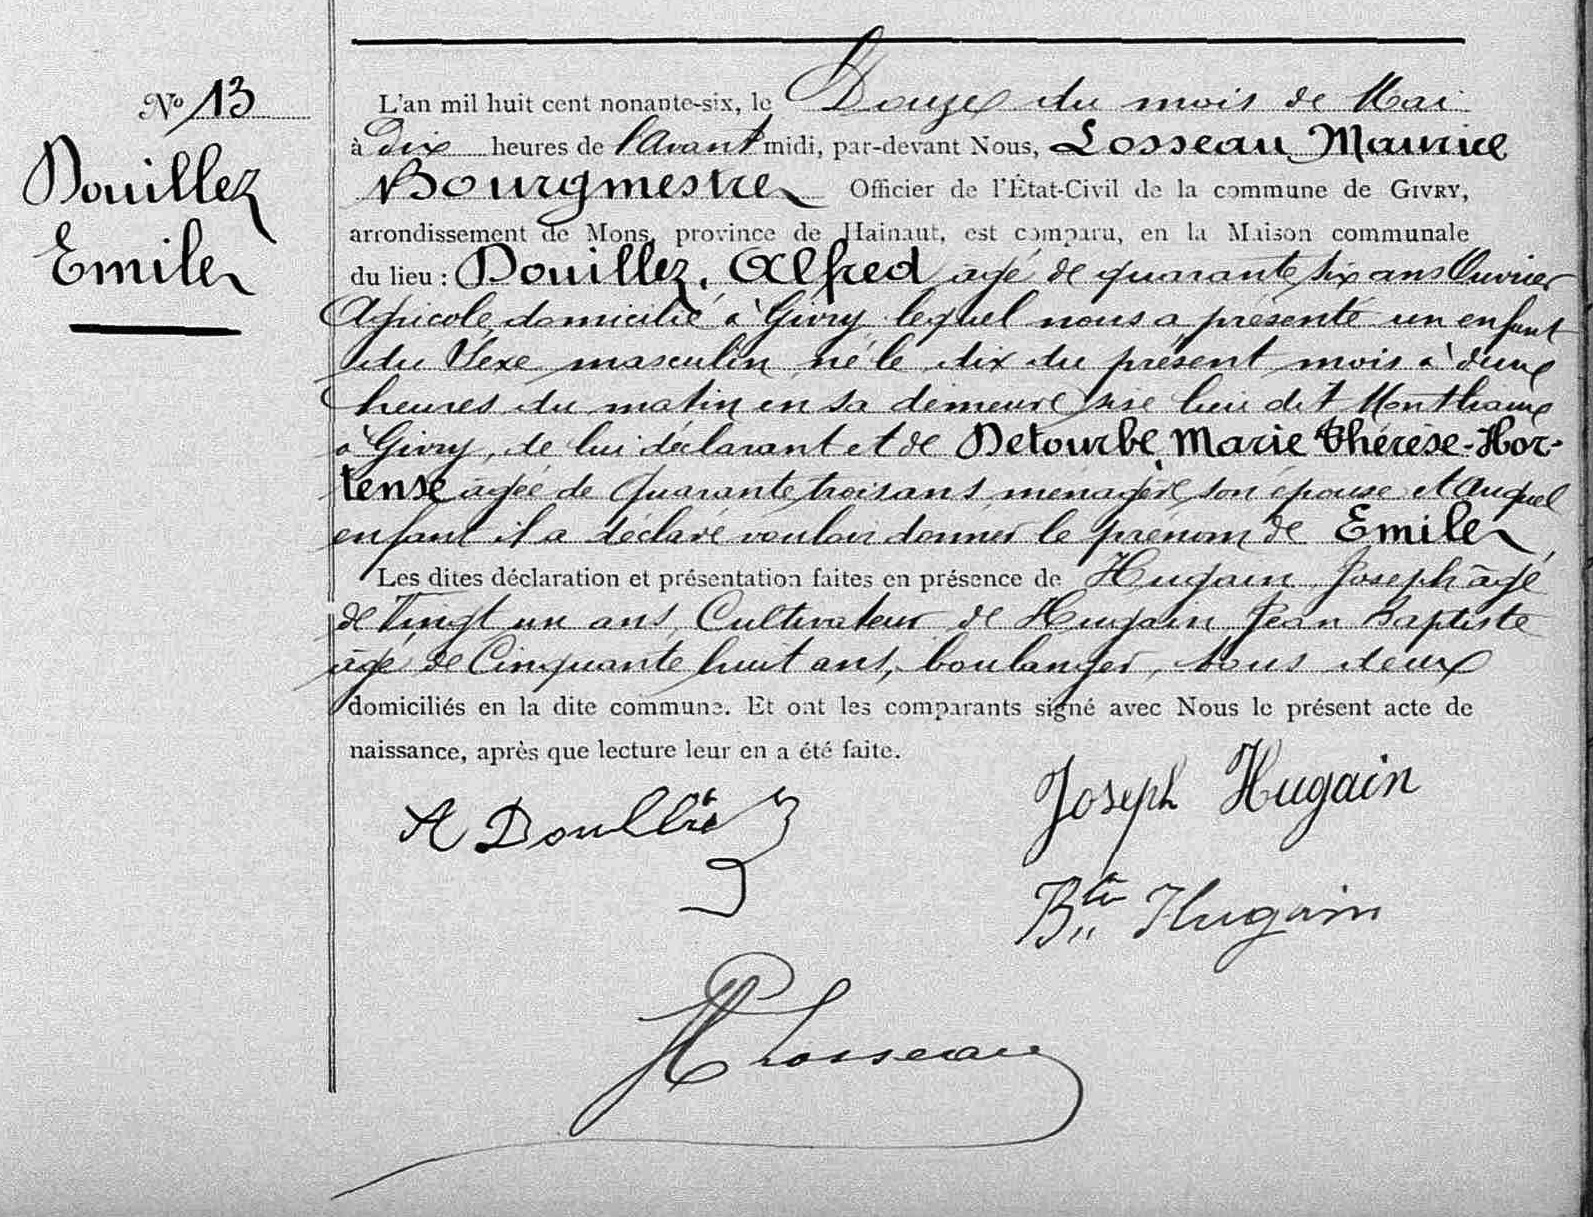 N° 13
Douillez
Emile
L'an mil huit cent nonante-six, le Douze du mois de Mai
à dix heures de l'Avant midi, par-devant Nous, Losseau Maurice
Bourgmestre Officier de l'État-Civil de la commune de GIVRY,
arrondissement de Mons, province de Hainaut, est comparu, en la Maison communale
du lieu : Douillez, Alfred agé de quarante six ans Ouvrier
Agricole domicilié à Givry lequel nous a présenté un enfant
du Sexe masculin né le dix du présent mois à d'une
heures du matin en sa demeure sise lieu dit
à Givry, de lui déclarant et de Detourbe Marie Thérèse-Hor-
tense agée de quarante trois ans, ménagère son épouse et Auquel
enfant il a déclaré vouloir donner le prénom de Emile,
Les dites déclaration et présentation faites en présence de Hugain Joseph âgé
de Vingt un ans, Cultivateur de Hugain Jean Baptiste
âgé de Cinquante huit ans, boulanger, tous deux
domiciliés en la dite commune. Et ont les comparants signé avec Nous le présent acte de
naissance, après que lecture leur en a été faite.
Joseph Hugain
A Douillez
Bte Hugain
M Losseau